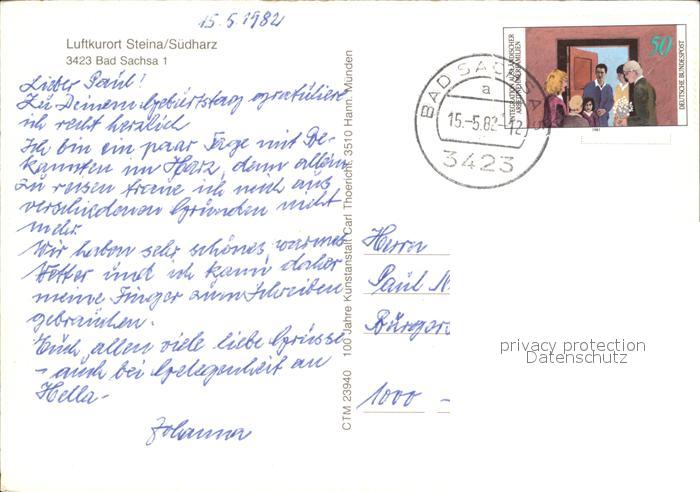 15.5.1982
Luftkurort Steina/Südharz
3423 Bad Sachsa 1
Lieber Paul!
Zu Deinem Geburtstag gratuliere
ich recht herzlich
Ich bin ein paar Tage mit Be-
kannten im Harz, denn allein
zu reisen traue ich mich aus
verschiedenen Gründen nicht
mehr.
Wir haben sehr schönes, warmes
Wetter und ich kann daher
meine Finger zum Schreiben
gebrauchen.
Euch allen viele liebe Grüsse
- auch bei Gelegenheit an
Hella-
Johanna
CTM 23940 100 Jahre Kunstanstalt Carl Thoericht, 3510 Hann. Münden
BAD SACHSA
a
15.-5.82-12
3423
INTEGRATION AUSLÄNDISCHER
ARBEITNEHMERFAMILIEN
50
DEUTSCHE BUNDESPOST
1981
Herrn
Paul
Bürger
1000 -
privacy protection
Datenschutz